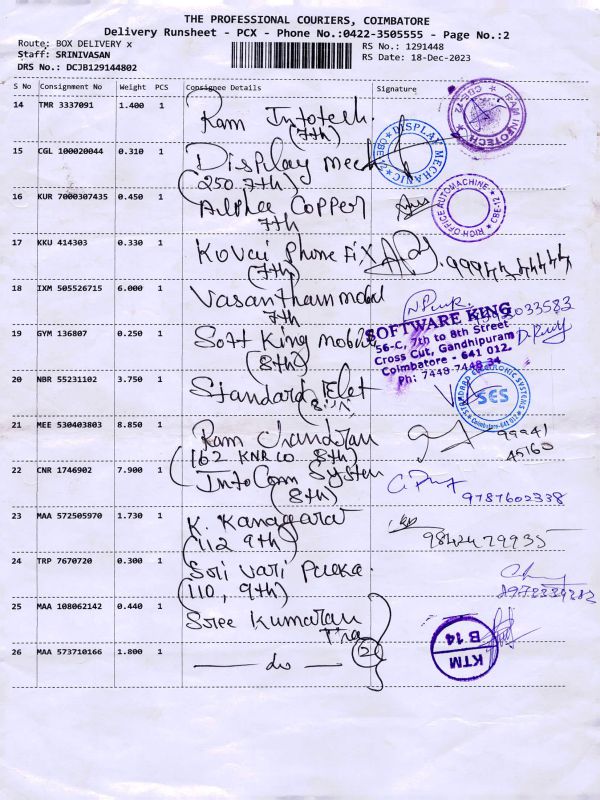 THE PROFESSIONAL COURIERS, COIMBATORE
Delivery Runsheet - PCX - Phone No.:0422-3505555 - Page No.:2
Route: BOX DELIVERY x
RS No.: 1291448
Staff: SRINIVASAN
RS Date: 18-Dec-2023
DRS No.: DCJB129144802
S No Consignment No Weight PCS Consignee Details Signature
14 TMR 3337091 1.400 1 Ram Infotech
(7th)
15 CGL 100020044 0.310 1 Display mech
(250 7th)
DISPLAY MECHANIC
16 KUR 7000307435 0.450 1 Alpha Copper
7th
RICH OFFICE AUTOMACHINE
CBE-12
17 KKU 414303 0.330 1 Kovai Phone Fix
(7th)
18 IXM 505526715 6.000 1 Vasantham mobil
7th
19 GYM 136807 0.250 1 Soft King mobile
(8th)
SOFTWARE KING
56-C, 7th to 8th Street
Cross Cut, Gandhipuram
Coimbatore - 641 012.
Ph: 7448 7448 34
20 NBR 55231102 3.750 1 Standard Elet
SES
21 MEE 530403803 8.850 1 Ram Chandran
(162 KNR 8th)
99941
45160
22 CNR 1746902 7.900 1 Info Comm System
(8th)
9787602338
23 MAA 572505970 1.730 1 K. Kanagaraj
(112 9th)
9842479935
24 TRP 7670720 0.300 1 Sri Vari
(110, 9th)
25 MAA 108062142 0.440 1 Sree Kumaran
Tra
26 MAA 573710166 1.800 1 — do —
2
KTM
B 14